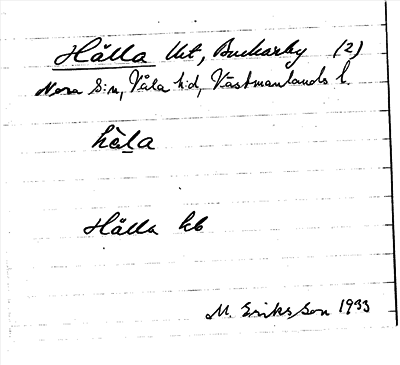 Hälla Utt, Buckarby (2)
Nora S:n, Våla h:d, Västmanlands l.
hèl̲a
Hälla kb
M. Eriksson 1933